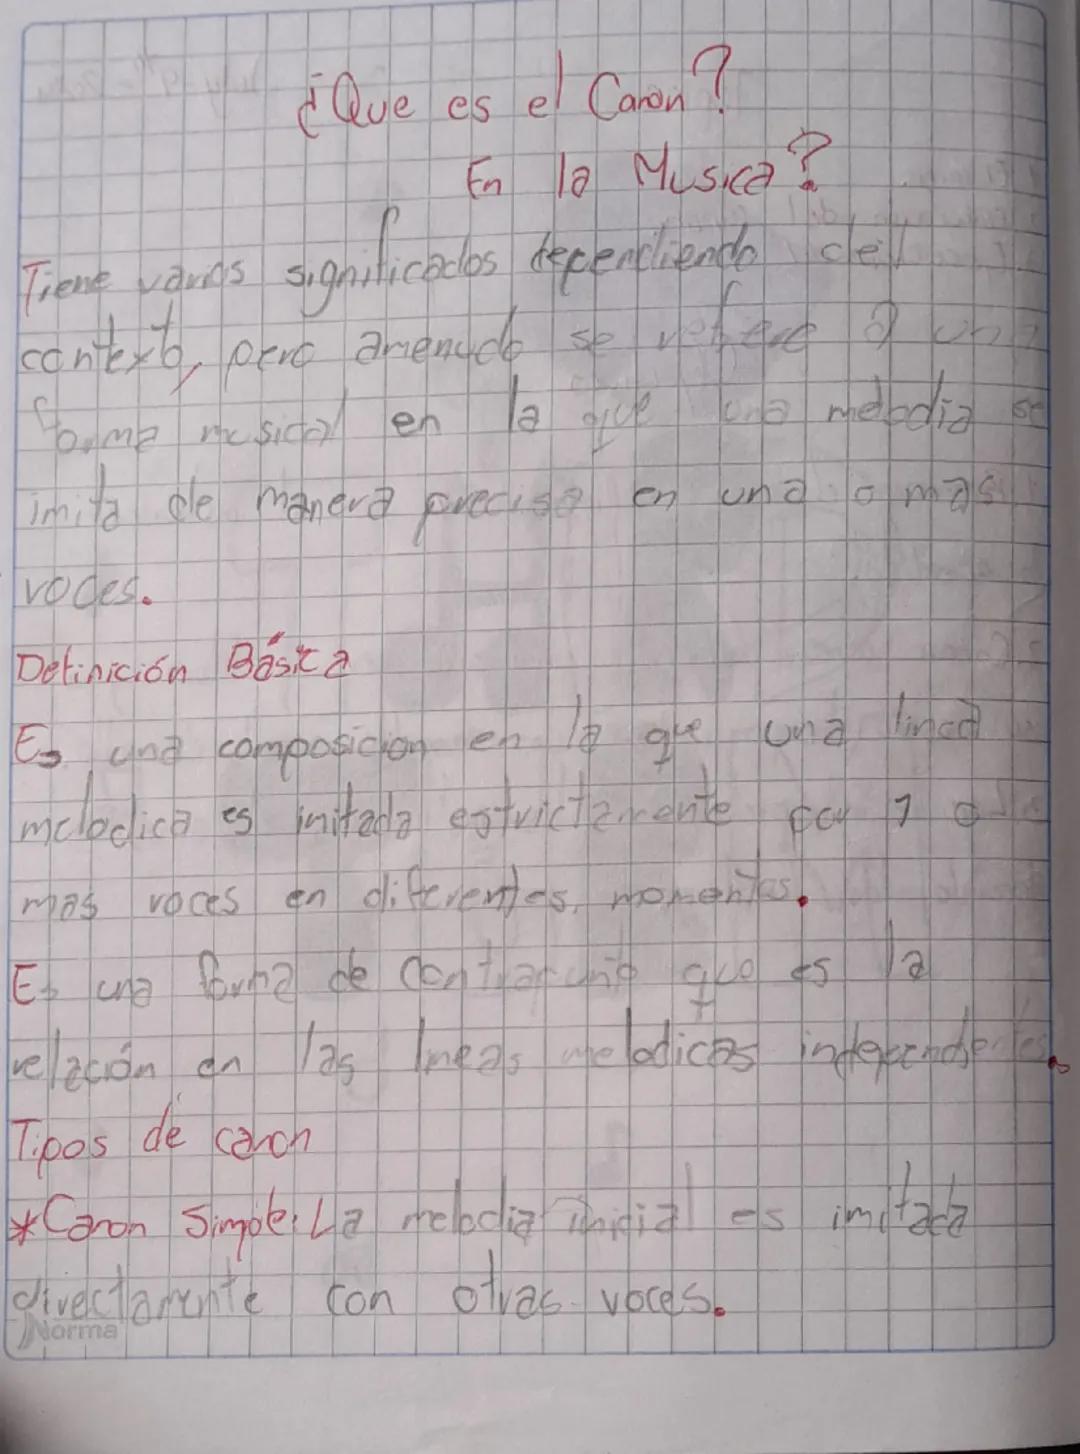 ¿Que es el Canon?
En la Musica?
Tiene varios significados dependiendo del
contexto, pero amenudo se refiere a una
forma musical en la que una melodia se
imita de manera precisa en una o mas
voces.
Definición Básica
Es una composicion en la que una linea
melodica es imitada estrictamente por 1 o
mas voces en diferentes momentos.
Es una forma de contrapunto que es la
relación en las lineas melodicas independientes.
Tipos de canon
*Canon Simple: La melodia inicial es imitada
directamente con otras voces.
Norma